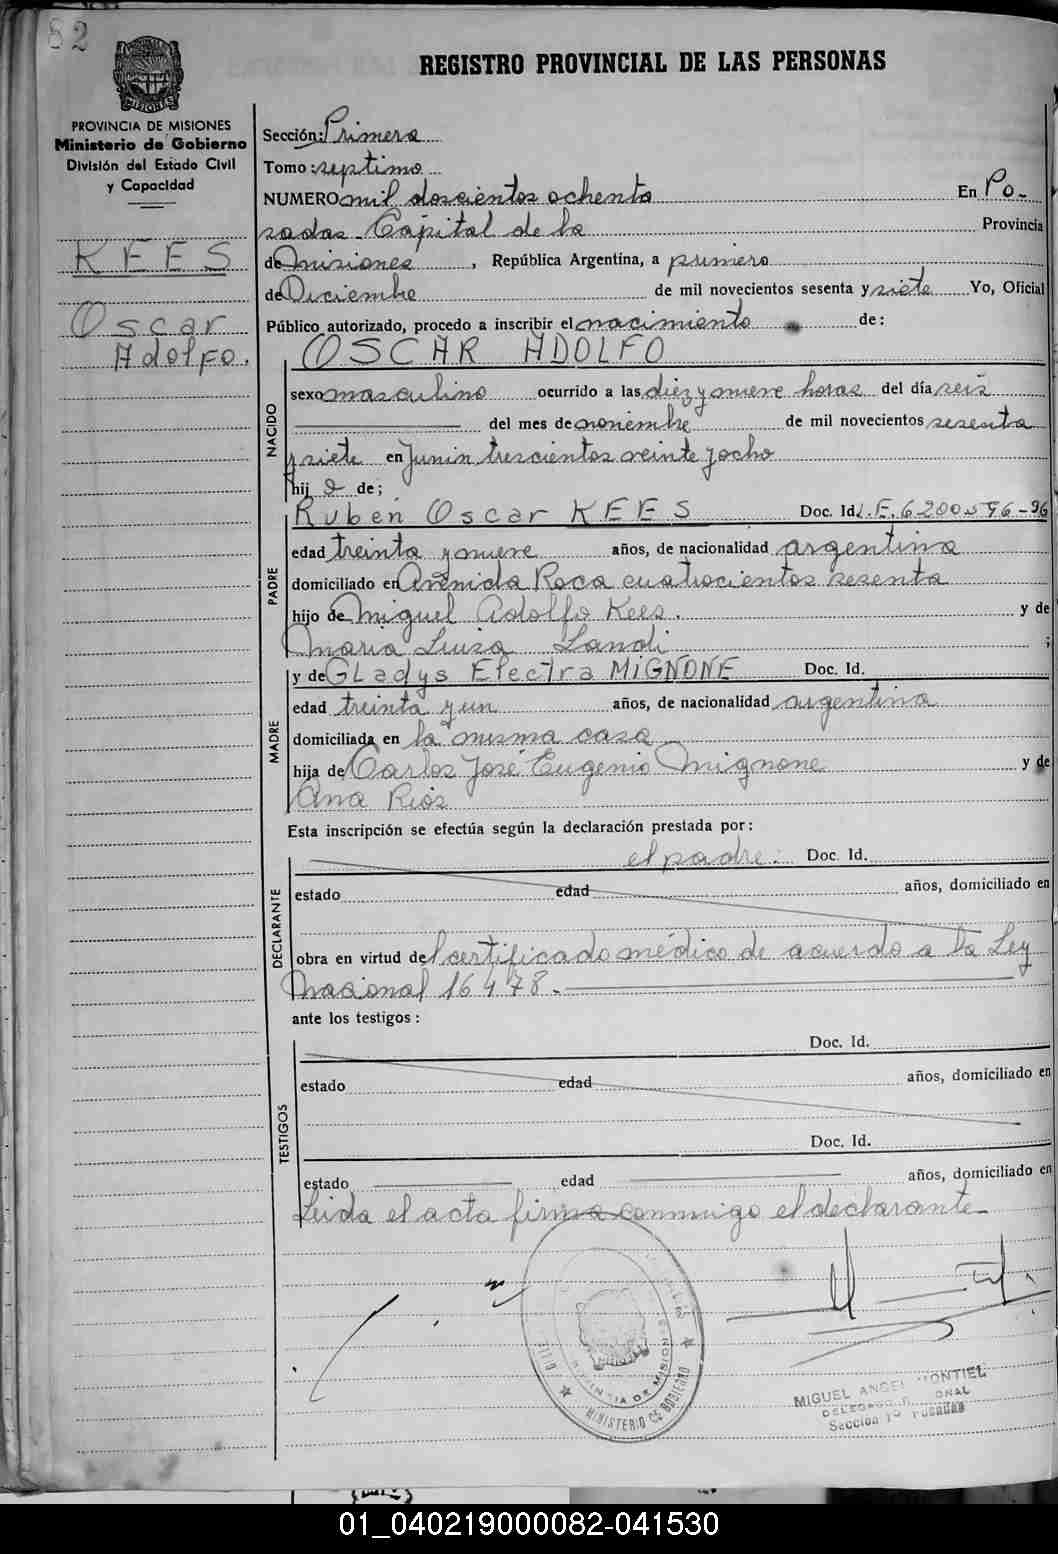 82
REGISTRO PROVINCIAL DE LAS PERSONAS
MISIONES
PROVINCIA DE MISIONES
Ministerio de Gobierno
División del Estado Civil
y Capacidad
KEES
Oscar
Adolfo.
Sección: Primera
Tomo: septimo
NUMERO mil doscientos ochenta En Po-
sadas Capital de la Provincia
de Misiones, República Argentina, a primero
de Diciembre de mil novecientos sesenta y siete Yo, Oficial
Público autorizado, procedo a inscribir el nacimiento de:
OSCAR ADOLFO
NACIDO
sexo masculino ocurrido a las diez y nueve horas del día seis
del mes de noviembre de mil novecientos sesenta
y siete en Junin trescientos veinte y ocho
hij o de;
PADRE
Ruben Oscar KEES Doc. Id. L.E. 6200
edad treinta y nueve años, de nacionalidad argentina
domiciliado en Avenida Roca cuatrocientos sesenta
hijo de Miguel Adolfo Kees. y de
Maria Luisa Landi ;
MADRE
y de Gladys Electra MIGNONE Doc. Id.
edad treinta y un años, de nacionalidad argentina
domiciliada en la misma casa
hija de Carlos José Eugenio Mignone y de
Ana Rios
Esta inscripción se efectúa según la declaración prestada por:
DECLARANTE
el padre. Doc. Id.
estado edad años, domiciliado en
obra en virtud del certificado médico de acuerdo a la Ley
Nacional 16478.-
ante los testigos:
TESTIGOS
Doc. Id.
estado edad años, domiciliado en
Doc. Id.
estado edad años, domiciliado en
Leida el acta firma conmigo el declarante-
PROVINCIA DE MISIONES
MINISTERIO DE GOBIERNO
MIGUEL ANGEL MONTIEL
Sección 1ª Posadas
01_040219000082-041530